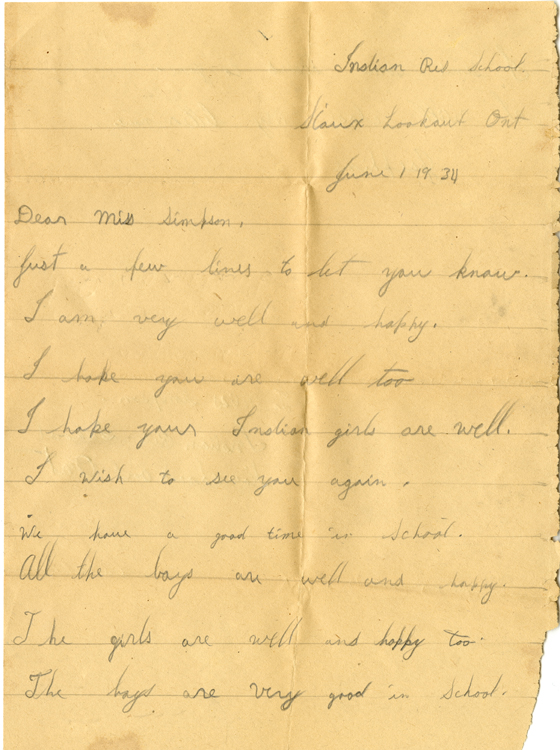 Indian Res School.
Sioux Lookout Ont
June 1 1934
Dear Miss Simpson,
Just a few lines to let you know.
I am very well and happy.
I hope you are well too
I hope your Indian girls are well.
I wish to see you again.
We have a good time in School.
All the boys are well and happy.
The girls are well and happy too.
The boys are very good in School.